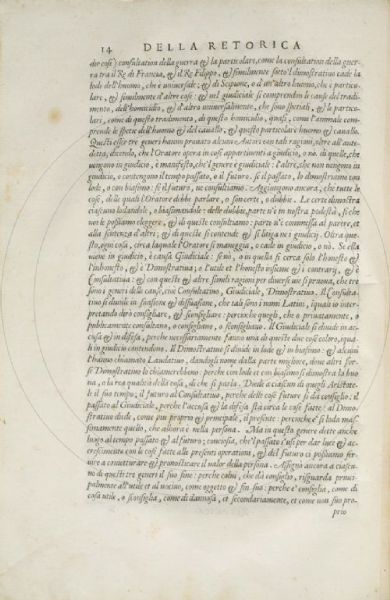 14 DELLA RETORICA
dir cosi) consultation della guerra & la particolare, come la consultation della guer
ra tra il Re di Francia, & il Re Filippo, & similmente sotto'l dimostrativo cade la
lode dell'huomo, che è universale: & di Scipione, o d'un'altro huomo, che è particu
lare, & similmente d'altre cose: & nel giudiciale si comprendon le cause del tradi-
mento, dell'homicidio, & d'altro universalmente, che sono spetiali, & le partico-
lari, come di questo tradimento, di questo homicidio, quasi, come l'animale com-
prende le spetie dell'huomo & del cavallo, & questo particulare huomo & cavallo.
Questi esser tre generi hanno provato alcuni Autori con tali ragioni, oltre all'auto-
rità, dicendo, che l'Oratore opera in cose appartenenti a giudicio, o nò. di quelle, che
vengono in giudicio, è manifesto, che'l genere è giudiciale: l'altre, che non vengono in
giudicio, o contengono il tempo passato, o il futuro. se il passato, lo dimostriamo con
lode, o con biasimo: se il futuro, ne consultiamo. Aggiungono ancora, che tutte le
cose, delle quali l'Oratore debbe parlare, o son certe, o dubbie. Le certe dimostra
ciascuno lodandole, o biasimandole: delle dubbie, parte n'è in nostra podestà, si che
noi le possiamo eleggere, & di queste consultiamo: parte n'è commessa al parere, et
alla scienza d'altri; & di queste si contende & si litiga ne i giudicij. Oltra que-
sto, ogni cosa, circa laquale l'Oratore si maneggia, o cade in giudicio, o nò. Se ella
viene in giudicio, è causa Giudiciale: se nò, o in quella si cerca solo l'honesto &
l'inhonesto, & è Dimostrativa; o l'utile et l'honesto insieme & i contrarij, & è
Consultativa: & con queste & altre simili ragioni per diverse vie si pruova, che tre
sono i generi delle cause, cioè Consultativo, Giudiciale, Dimostrativo. Il Consulta-
tivo si divide in suasione & dissuasione, che tali sono i nomi Latini, i quali io inter-
pretando dirò consigliare, & sconsigliare: perciochè quegli, che o privatamente, o
publicamente consultano, o consigliano, o sconsigliano. Il Giudiciale si divide in accu-
sa & in difesa, perche necessariamente fanno una di queste due cose coloro, i qua-
li in giudicio contendono. Il Dimostrativo si divide in lode & in biasimo: & alcuni
l'hanno chiamato Laudativo, dandogli nome dalla parte migliore, dove altri for-
se Dimostrativo lo chiamerebbono: perche con lode et con biasimo si dimostra la buo-
na, o la rea qualità della cosa, di che si parla. Diede a ciascun di quegli Aristote-
le il suo tempo; il futuro al Consultativo, perche delle cose future si dà consiglio: il
passato al Giudiciale, perche l'accusa & la difesa stà circa le cose fatte: al Dimo-
strativo diede, come piu proprio & principale, il presente: percioche & si loda mas-
simamente quello, che allhora è nella persona. Ma in questo genere dette anche
luogo al tempo passato & al futuro; conciosia, che'l passato s'usi per dar luce & ac-
crescimento con le cose fatte alle presenti operationi, & del futuro ci possiamo ser-
vire a conietturare & pronosticare il valor della persona. Assignò ancora a ciascu-
no di questi tre generi il suo fine: perche colui, che dà consiglio, risguarda princi-
palmente all'utile et al nocivo, come oggetto & fin suo: perche è consiglia, come di
cosa utile, o sconsiglia, come di dannosa, et secondariamente, et come non suo pro-
prio